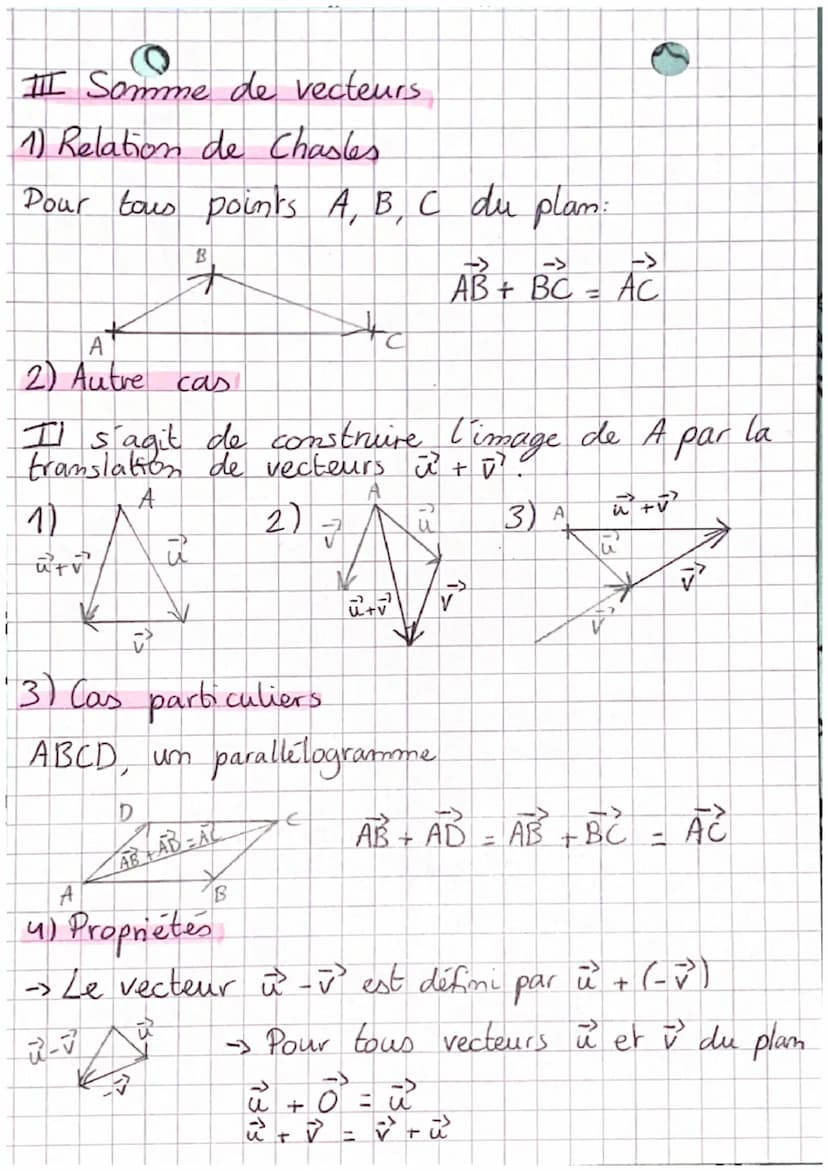 III Somme de vecteurs
1) Relation de Chasles
Pour tous points A, B, C du plan:
B
A
C
AB⃗ + BC⃗ = AC⃗
2) Autre cas
Il s'agit de construire l'image de A par la
translation de vecteurs u⃗ + v⃗.
1)
A
u⃗+v⃗
u⃗
v⃗
2)
A
v⃗
u⃗
u⃗+v⃗
v⃗
3)
A
u⃗+v⃗
u⃗
v⃗
v⃗
3) Cas particuliers
ABCD, un parallélogramme
D
C
AB⃗ + AD⃗ = AC⃗
A
B
AB⃗ + AD⃗ = AB⃗ + BC⃗ = AC⃗
4) Propriétés
→ Le vecteur u⃗ - v⃗ est défini par u⃗ + (-v⃗)
u⃗-v⃗
u⃗
-v⃗
→ Pour tous vecteurs u⃗ et v⃗ du plan
u⃗ + 0⃗ = u⃗
u⃗ + v⃗ = v⃗ + u⃗